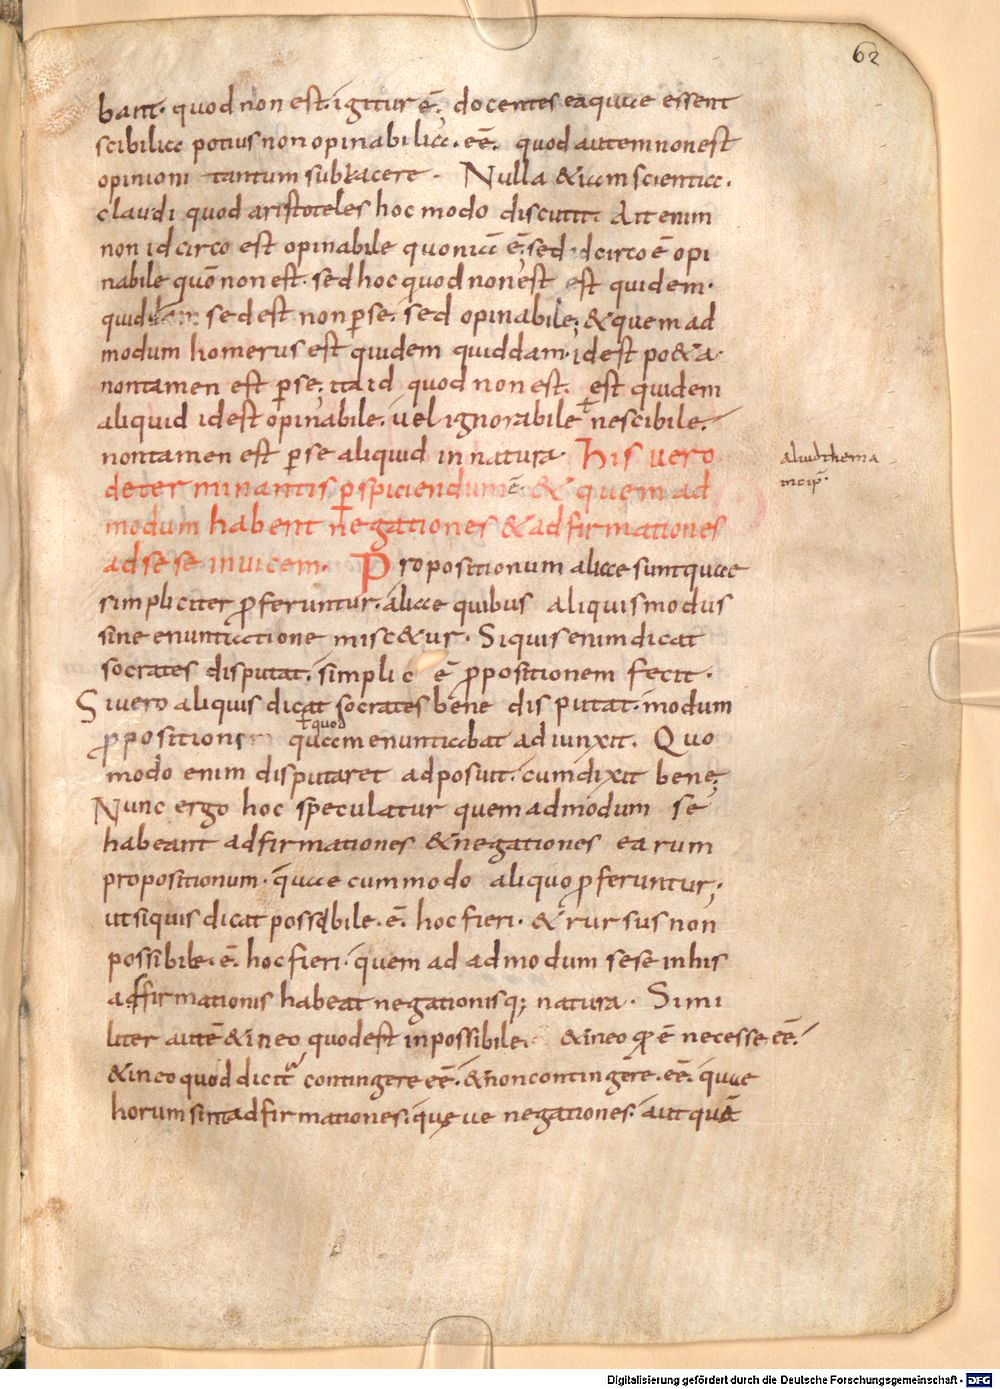 62
bant· quod non est· igitur ē; docentes ea quae essent
scibilia potius non opinabilia· eē· quod autem non est
opinioni tantum subiacere· Nulla & iam scientia·
claudi quod aristoteles hoc modo discutit Ait enim
non idcirco est opinabile quoniā ē; sed idcirco ē opi
nabile quō non est· sed hoc quod non est est quidem·
quiddam sed est non p̄ se· sed opinabile; & quem ad
modum homerus est quidem quiddam· id est po&a·
non tamen est p̄ se; ita id quod non est· est quidem
aliquid id est opinabile· uel ignorabile ł nescibile·
non tamen est p̄ se aliquid in natura· His uero
determinatis p̄spiciendum ē & quem ad
modum habent negationes & adfirmationes
ad sese inuicem· Propositionum aliae sunt quae
aliud thema
incip̄·
simpliciter p̄feruntur· aliae quibus aliquis modus
sine enuntiatione misc&ur· Si quis enim dicat
socrates disputat· simplicē p̄positionem fecit·
Si uero aliquis dicat socrates bene disputat· modum
ł quod
p̄positioni quam enuntiabat adiunxit· Quo
modo enim disputaret adposuit· cum dixit bene;
Nunc ergo hoc speculatur quem admodum se
habeant adfirmationes & negationes earum
propositionum· quae cum modo aliquo p̄feruntur;
ut si quis dicat possibile· ē· hoc fieri· & rursus non
possibile· ē· hoc fieri· quem ad admodum sese in his
affirmationis habeat negationisq; natura· Simi
liter autē & in eo quod est inpossibile· & in eo qđ ē necesse eē·
& in eo quod dicit̄ contingere eē· & non contingere· eē· quae
horum sint adfirmationes· quę ue negationes· aut quē

Digitalisierung gefördert durch die Deutsche Forschungsgemeinschaft - DFG